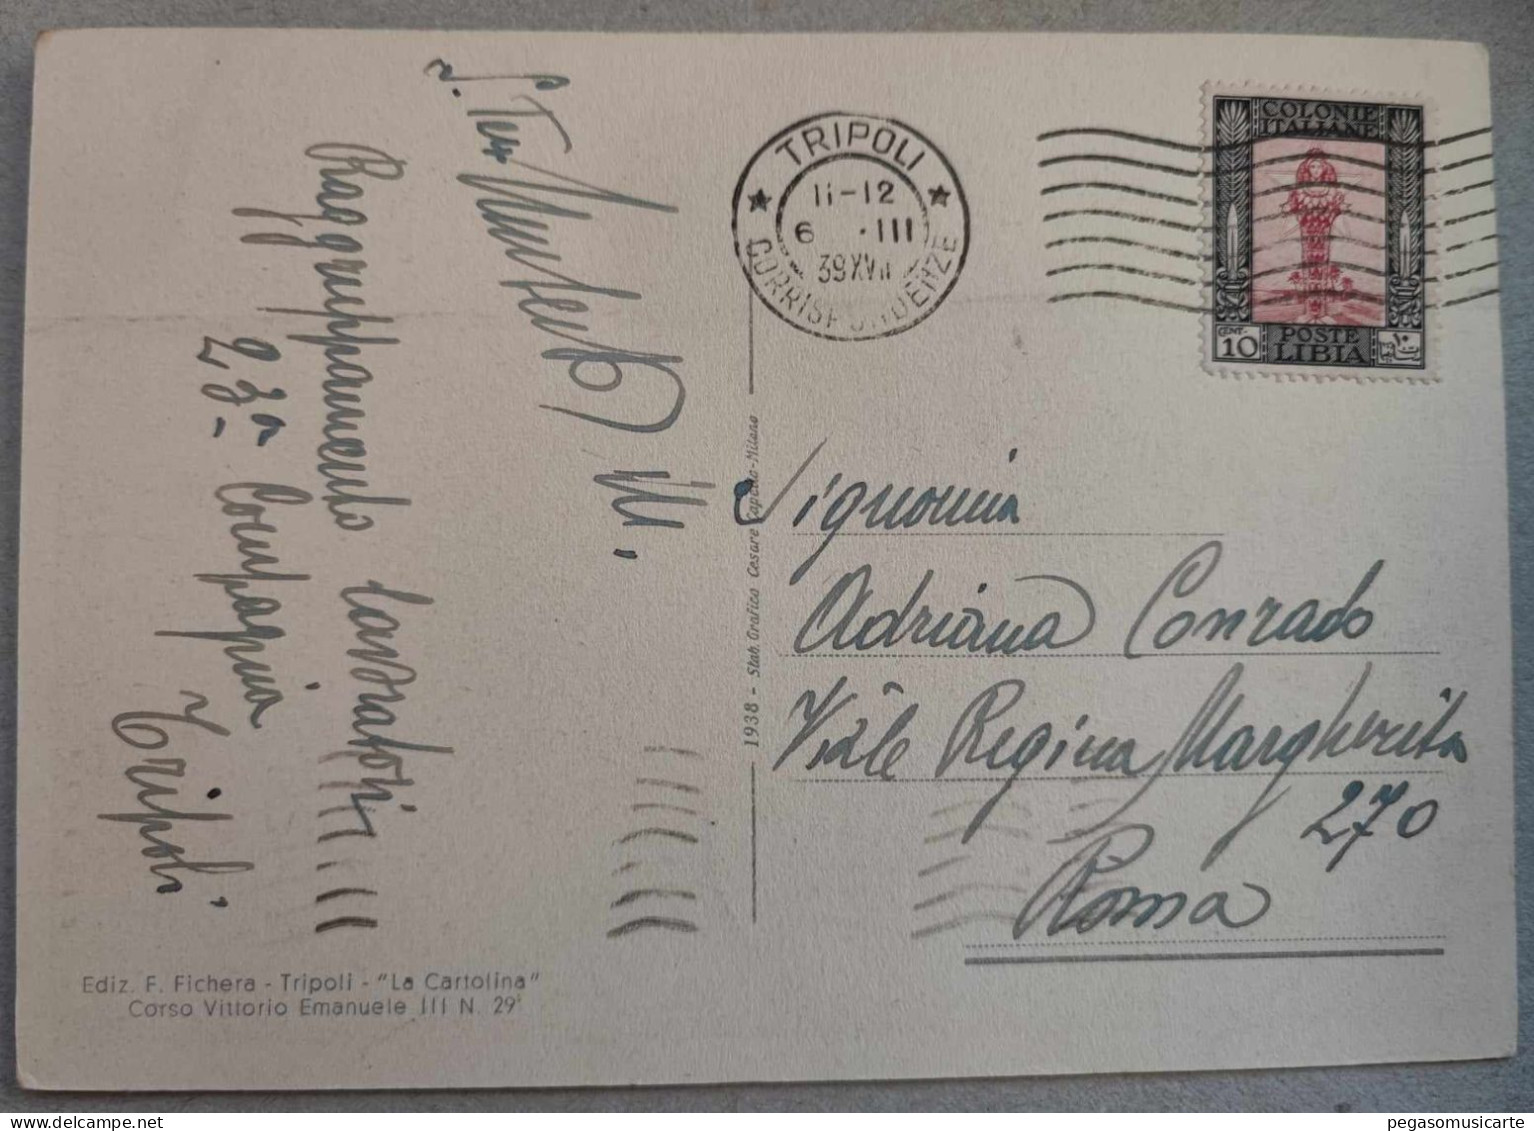 Raggruppamento lavoratori
23ª Compagnia
Tripoli
TRIPOLI
11-12
6 . III
39 XVII
CORRISPONDENZE
COLONIE
ITALIANE
CENT.
10
POSTE
LIBIA
١٠
Signorina
Adriana Conrado
Viale Regina Margherita
270
Roma
1938 - Stab. Grafico Cesare Capello - Milano
Ediz. F. Fichera - Tripoli - "La Cartolina"
Corso Vittorio Emanuele III N. 29
delcampe.net
pegasomusicarte